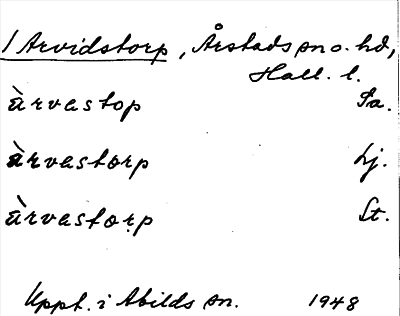 1 Arvidstorp, Årstads sn o. hd,
Hall. l.
àrvastop Sa.
àrvastorp Lj.
àrvastorp St.
Uppt. i Abilds sn. 1948